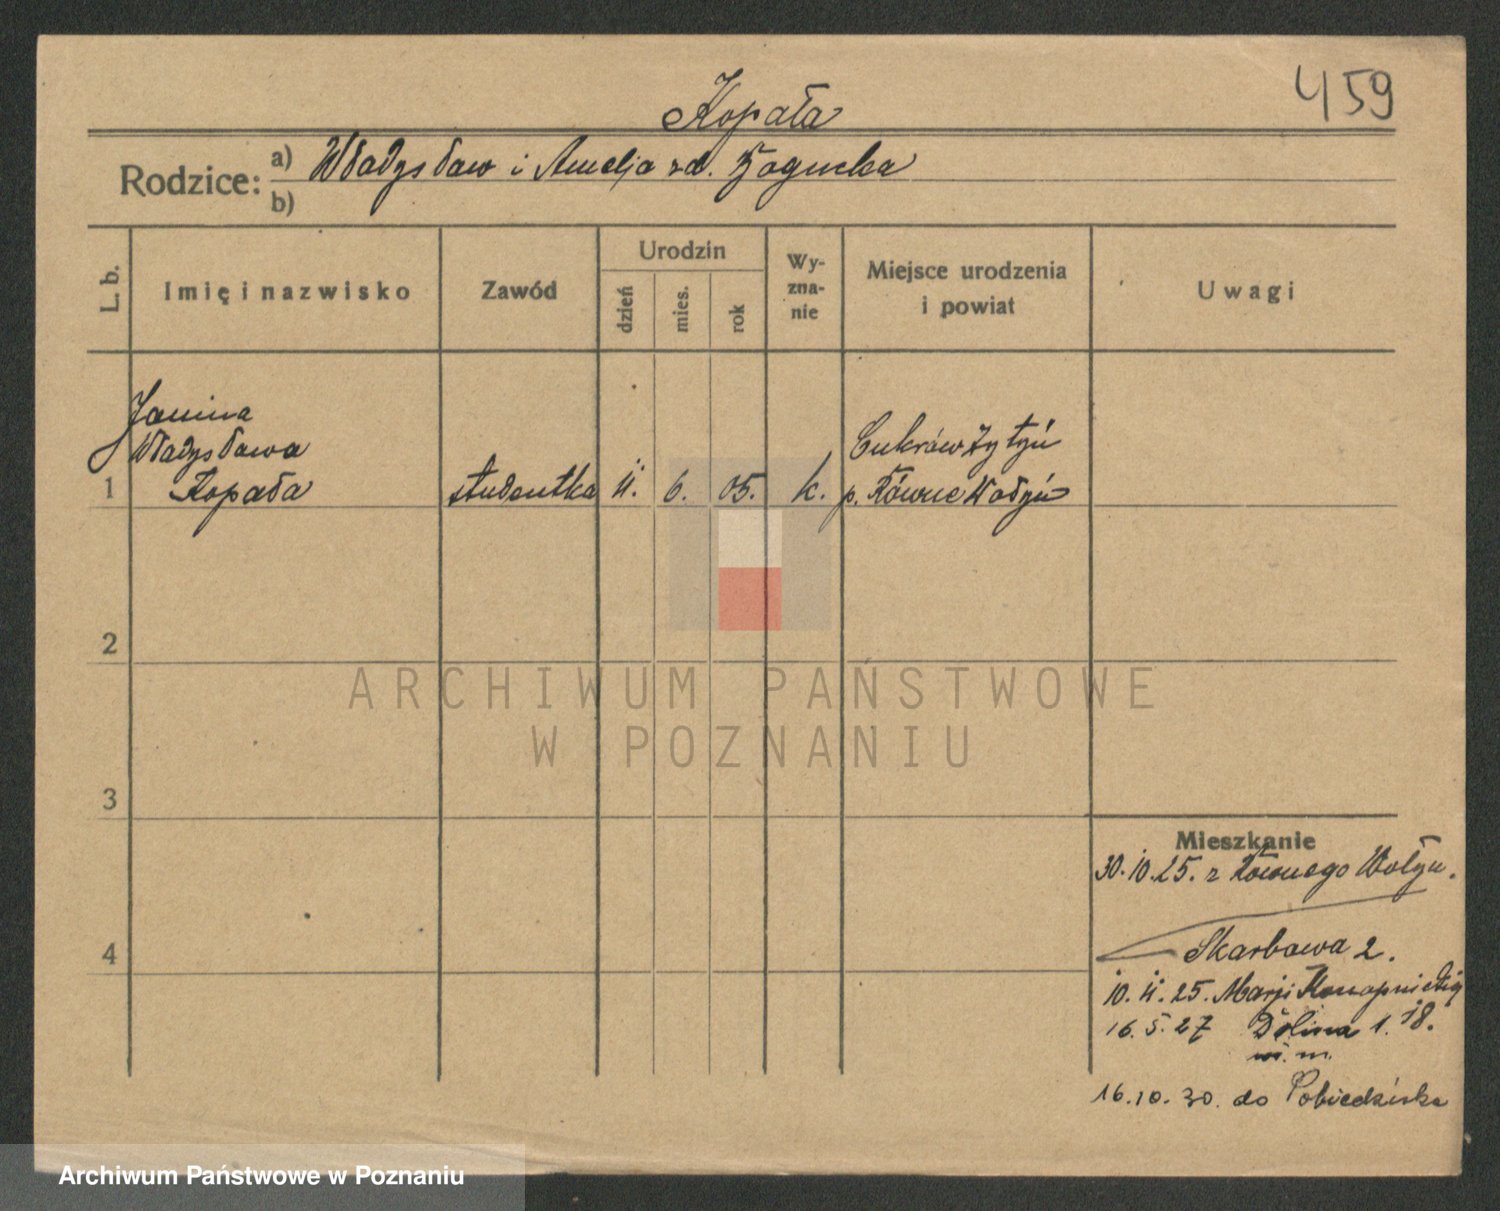 459
Kopała
Rodzice: a) Władysław i Amelja zd.
b)
L. b.
Imię i nazwisko
Zawód
Urodzin
dzień
mies.
rok
Wy-
zna-
nie
Miejsce urodzenia
i powiat
Uwagi
Janina
Władysława
1 Kopała
studentka
11. 6. 05.
k.
Cukrów Żytyń
p. Równe Wołyń
2
3
4
Mieszkanie
30.10.25. z Równego Wołyn.
Skarbowa 2.
10. 11. 25. Marji Konopnickiej
18.
16. 5. 27 Dolina 1.
w. m.
16.10.30. do Pobiedziska
ARCHIWUM PAŃSTWOWE
W POZNANIU
Archiwum Państwowe w Poznaniu